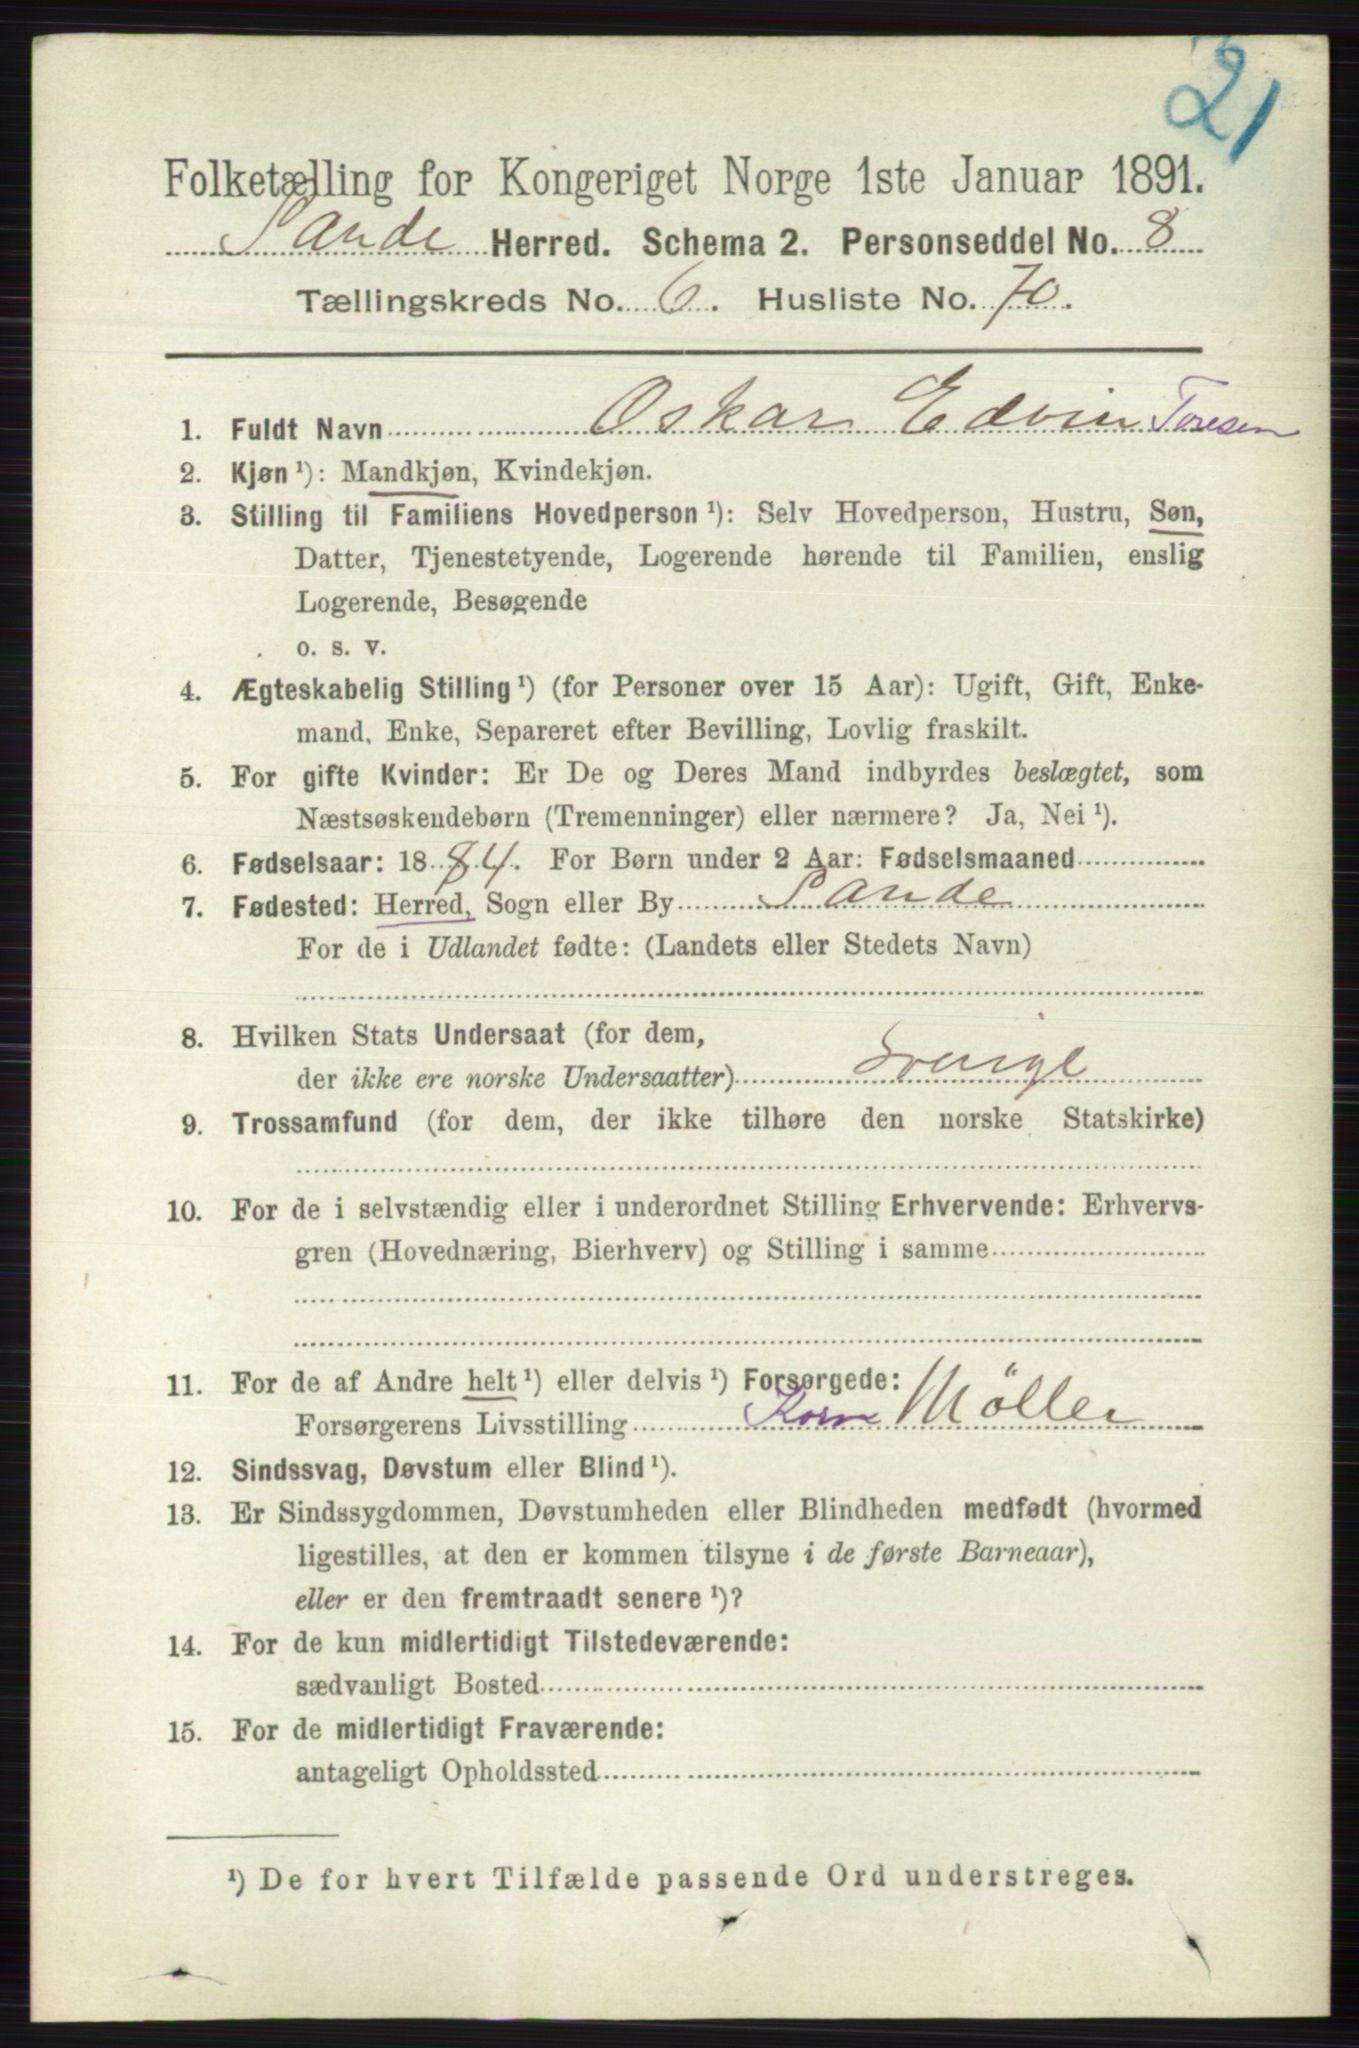 21
Folketælling for Kongeriget Norge 1ste Januar 1891.
Sande Herred. Schema 2. Personseddel No. 8
Tællingskreds No. 6. Husliste No. 70.
1. Fuldt Navn Oskar Edvin Toresen
2. Kjøn ¹): Mandkjøn, Kvindekjøn.
3. Stilling til Familiens Hovedperson ¹): Selv Hovedperson, Hustru, Søn,
Datter, Tjenestetyende, Logerende hørende til Familien, enslig
Logerende, Besøgende
o. s. v.
4. Ægteskabelig Stilling ¹) (for Personer over 15 Aar): Ugift, Gift, Enke-
mand, Enke, Separeret efter Bevilling, Lovlig fraskilt.
5. For gifte Kvinder: Er De og Deres Mand indbyrdes beslægtet, som
Næstsøskendebørn (Tremenninger) eller nærmere? Ja, Nei ¹).
6. Fødselsaar: 1884. For Børn under 2 Aar: Fødselsmaaned
7. Fødested: Herred, Sogn eller By Sande
For de i Udlandet fødte: (Landets eller Stedets Navn)
8. Hvilken Stats Undersaat (for dem,
der ikke ere norske Undersaatter) Sverige
9. Trossamfund (for dem, der ikke tilhøre den norske Statskirke)
10. For de i selvstændig eller i underordnet Stilling Erhvervende: Erhvervs-
gren (Hovednæring, Bierhverv) og Stilling i samme
11. For de af Andre helt ¹) eller delvis ¹) Forsørgede:
Forsørgerens Livsstilling Korn Möller
12. Sindssvag, Døvstum eller Blind ¹).
13. Er Sindssygdommen, Døvstumheden eller Blindheden medfødt (hvormed
ligestilles, at den er kommen tilsyne i de første Barneaar),
eller er den fremtraadt senere ¹)?
14. For de kun midlertidigt Tilstedeværende:
sædvanligt Bosted
15. For de midlertidigt Fraværende:
antageligt Opholdssted
¹) De for hvert Tilfælde passende Ord understreges.